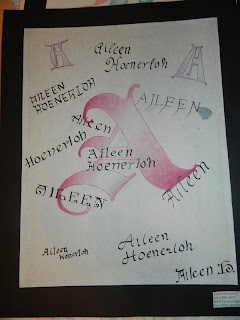 A
Aileen
Hoenerloh
A
AILEEN
HOENERLOH
AJLEEN
Aileen
Hoenerloh
A
Aileen
Hoenerloh
AILEEN
Aileen
Aileen
Honerloh
Aileen
Hoenerloh
Aileen